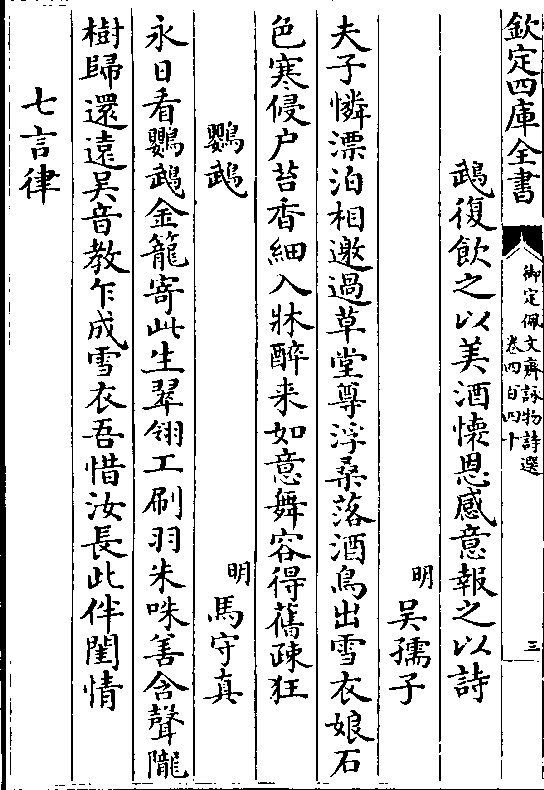 欽定四庫全書
御定佩文齋詠物詩選
卷四百四十
三
鵡復飲之以美酒懷恩感意報之以詩
明
吳孺子
夫子憐漂泊相邀過草堂尊浮桑落酒鳥出雪衣娘石
色寒侵户苔香細入牀醉来如意舞容得舊疎狂
鸚鵡
明
馬守真
永日看鸚鵡金籠寄此生翠翎工刷羽朱咮善含聲隴
樹歸還遠吳音教乍成雪衣吾惜汝長此伴閨情
七言律